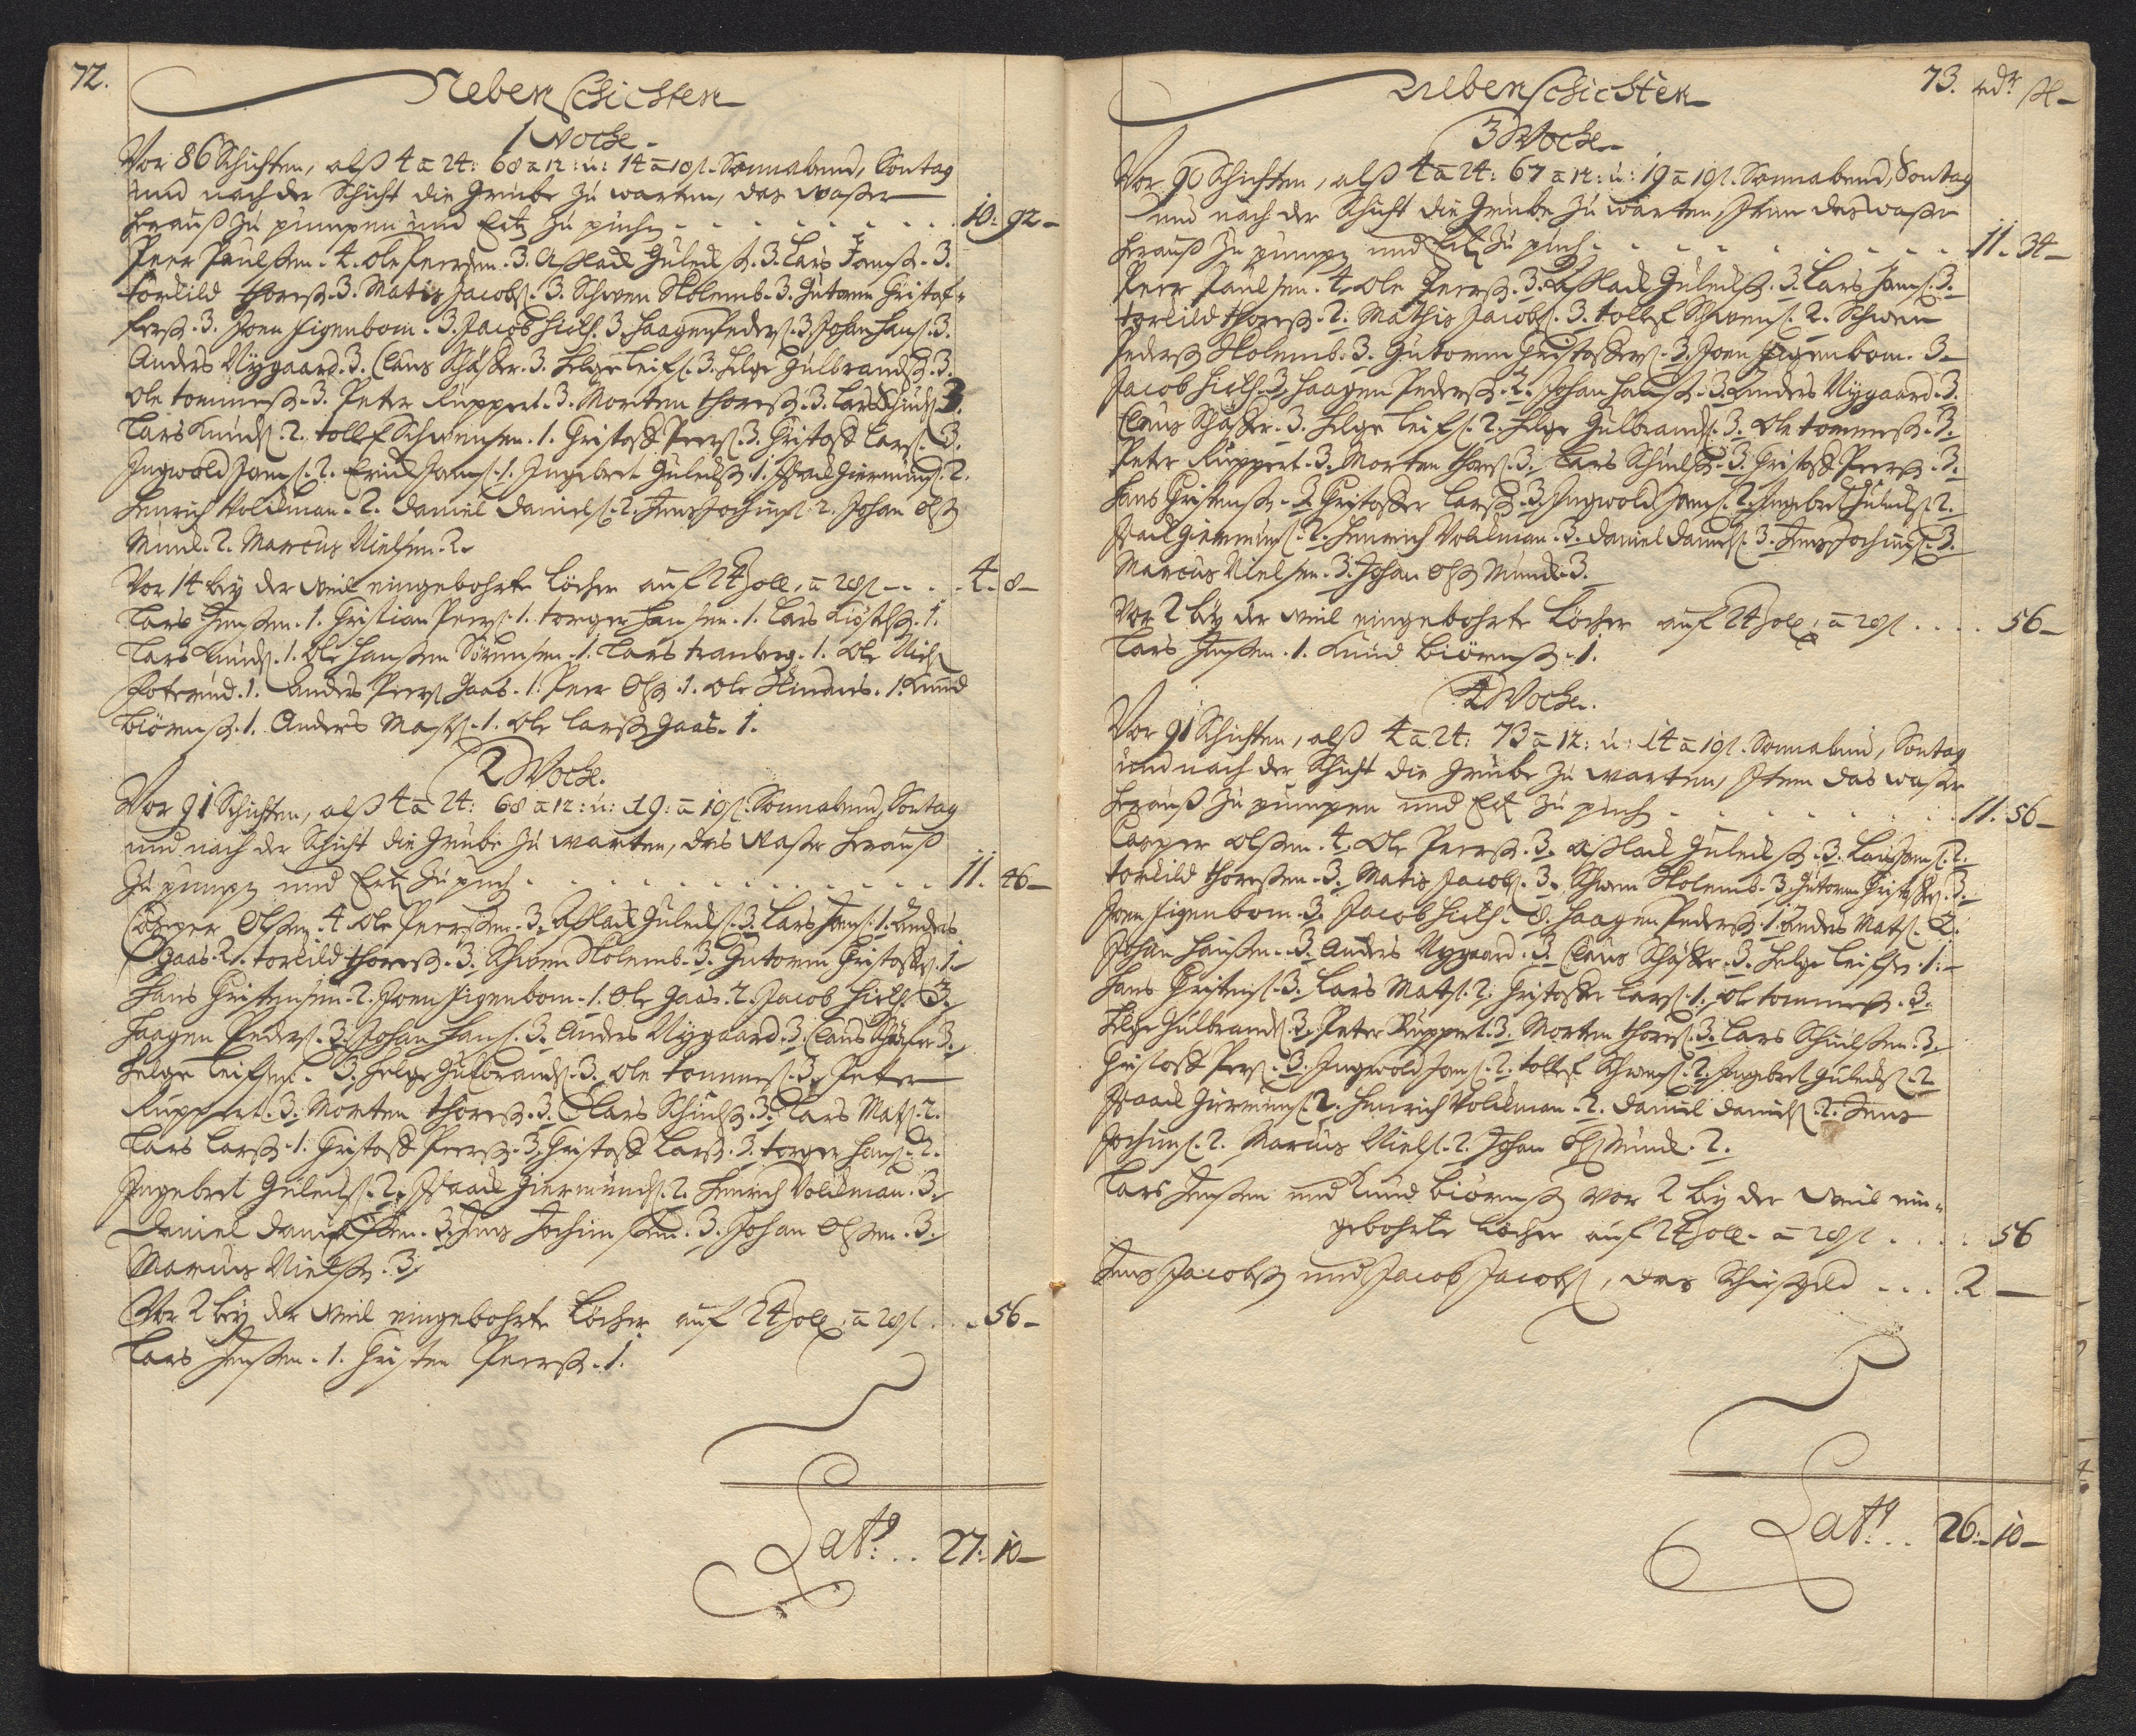 72.
Neben Schichten
1 Woche.
Vor 86 Schichten, alß 4 a 24: 68 a 12: u: 14 a 10 ß. Sonnabend, Sontag
und nach der Schicht die Grube zu warten, das Waßer
herauß zu pumpen und Ertz zu puchen . . . 10. 92 –
Peer Paulßen. 4. Ole Peerßen. 3. Aßlack Gulecks. 3. Lars Jonß. 3.
Torkild Thorß. 3. Matis Jacobs. 3. Schwen Skolemb. 3. Gutorm Christof-
ferß. 3. Joen Figenbom. 3. Jacob Hielß. 3. Haagen Peders. 3. Johan Hanß. 3.
Anders Nygaard. 3. Claus Schäffer. 3. Helge Leifs. 3. Helge Gulbrandß. 3.
Ole Tommeß. 3. Peter Ruppert. 3. Morten Thorß. 3. Lars Schiuls. 3.
Lars Knuds. 2. Tollef Schwensen. 1. Christoff Peers. 3. Christoff Lars. 3.
Ingwold Jons. 2. Erick Jons. 1. Ingebret Gulecks. 1. Isaack Giermunds. 2.
Henrich Volckman. 2. Daniel Daniels. 2. Jens Jochims. 2. Johan Olß
Munck. 2. Marcus Nielsen. 2.
Vor 14 bey der Weil eingebohrte Löcher auf 24 Zoll, a 28 ß . . . 4. 8 –
Lars Jenßen. 1. Christian Peers. 1. Torger Hansen. 1. Lars 1.
Lars Knuds. 1. Ole Hanßen Sörensen. 1. Lars Tranberg. 1. Ole Niels
Foterud. 1. Anders Peers Gaas. 1. Peer Olß. 1. Ole 1. Knud
Biörnß. 1. Anders Matß. 1. Ole Larß Gaas. 1.
2 Woche.
Vor 91 Schichten, alß 4 a 24: 68 a 12: u: 19: a 10 ß. Sonnabend, Sontag
und nach der Schicht die Grube zu warten, das Waßer herauß
zu pumpen und Ertz zu puchen . . . 11. 46 –
Casper Olßen. 4. Ole Peerßen. 3. Aßlack Gulecks. 3. Lars Jons. 1. Anders
Gaas. 2. Torkild Thorß. 3. Schwen Skolemb. 3. Gutorm Christoffs. 1.
Hans Christensen. 2. Joen Figenbom. 1. Ole Gaas. 2. Jacob Hielß. 3.
Haagen Peders. 3. Johan Hans. 3. Anders Nygaard. 3. Claus Schäffer 3.
Helge Leifsen. 3. Helge Gulbrands. 3. Ole Tommeß. 3. Peter
Ruppert. 3. Morten Thorß. 3. Lars Schiulß. 3. Lars Mats. 2.
Lars Larß. 1. Christoff Peerß. 3. Christoff Larß. 3. Torger Hanß. 2.
Ingebret Gulecks. 2. Isaack Giermunds. 2. Henrich Volckman. 3.
Daniel Danielßen. 3. Jens Jochimßen. 3. Johan Olßen. 3.
Marcus Nielßen. 3.
Vor 2 bey der Weil eingebohrte Löcher auf 24 Zoll, a 28 ß . . . 56 –
Lars Jenßen. 1. Christen Peerß. 1.
Lat: . . 27. 10 –
73. rdr ß –
Neben Schichten
3 Woche.
Vor 90 Schichten, alß 4 a 24: 67 a 12: u: 19 a 10 ß. Sonnabend, Sontag
und nach der Schicht die Grube zu warten, Item das Waßer
herauß zu pumpen und Ertz zu puchen . . . 11. 34 –
Peer Paulsen. 4. Ole Peerß. 3. Aßlack Guleckß. 3. Lars Jons. 3.
Torkild Thorß. 2. Mathis Jacobs. 3. Tollef Schwens. 2. Schwen
Pederß Skolemb. 3. Gutorm Christoffers. 3. Joen Figenbom. 3.
Jacob Hielß. 3. Haagen Pederß. 2. Johan Hanß. 3. Anders Nygaard. 3.
Claus Schäffer. 3. Helge Leifs. 2. Helge Gulbrands. 3. Ole Tommeß. 3.
Peter Ruppert. 3. Morten Thors. 3. Lars Schiulß. 3. Christoff Peerß. 3.
Hans Christenß. 3. Christoffer Larß. 3. Ingwold Jons. 2. Ingebret Gulecks. 2.
Isaack Giermunds. 2. Henrich Volckman. 3. Daniel Daniels. 3. Jens Jochims. 3.
Marcus Nielsen. 3. Johan Olß Munck. 3.
Vor 2 bey der Weil eingebohrte Löcher auf 24 Zoll, a 28 ß . . . 56 –
Lars Jenßen. 1. Knud Biörnß. 1.
4 Woche.
Vor 91 Schichten, alß 4 a 24: 73 a 12: u: 14 a 10 ß. Sonnabend, Sontag
und nach der Schicht die Grube zu warten, Item das Waßer
herauß zu pumpen und Ertz zu puchen . . . 11. 56 –
Casper Olßen. 4. Ole Peerß. 3. Aßlack Guleckß. 3. Lars Jons. 2.
Torkild Thorßen. 3. Matis Jacobs. 3. Schwen Skolemb. 3. Gutorm Christoffs. 3.
Joen Figenbom. 3. Jacob Hielß. 3. Haagen Pederß. 1. Anders Mats. 2.
Johan Hanßen. 3. Anders Nygaard. 3. Claus Schäffer. 3. Helge Leifsen. 1.
Hans Christens. 3. Lars Mats. 2. Christoffer Lars. 1. Ole Tommeß. 3.
Helge Gulbrands. 3. Peter Ruppert. 3. Morten Thors. 3. Lars Schiulßen. 3.
Christoff Peers. 3. Ingwold Jons. 2. Tollef Schwens. 2. Ingebret Gulecks. 2.
Isaack Giermunds. 2. Henrich Volckman. 2. Daniel Daniels. 2. Jens
Jochims. 2. Marcus Niels. 2. Johan Olß Munck. 2.
Lars Jenßen und Knud Biörnß vor 2 bey der Weil ein-
gebohrte Löcher auf 24 Zoll. a 28 ß . . . 56
Jens Jacobß und Jacob Jacobs, das Schießgeld . . . 2 –
Lat: . . 26. 10 –